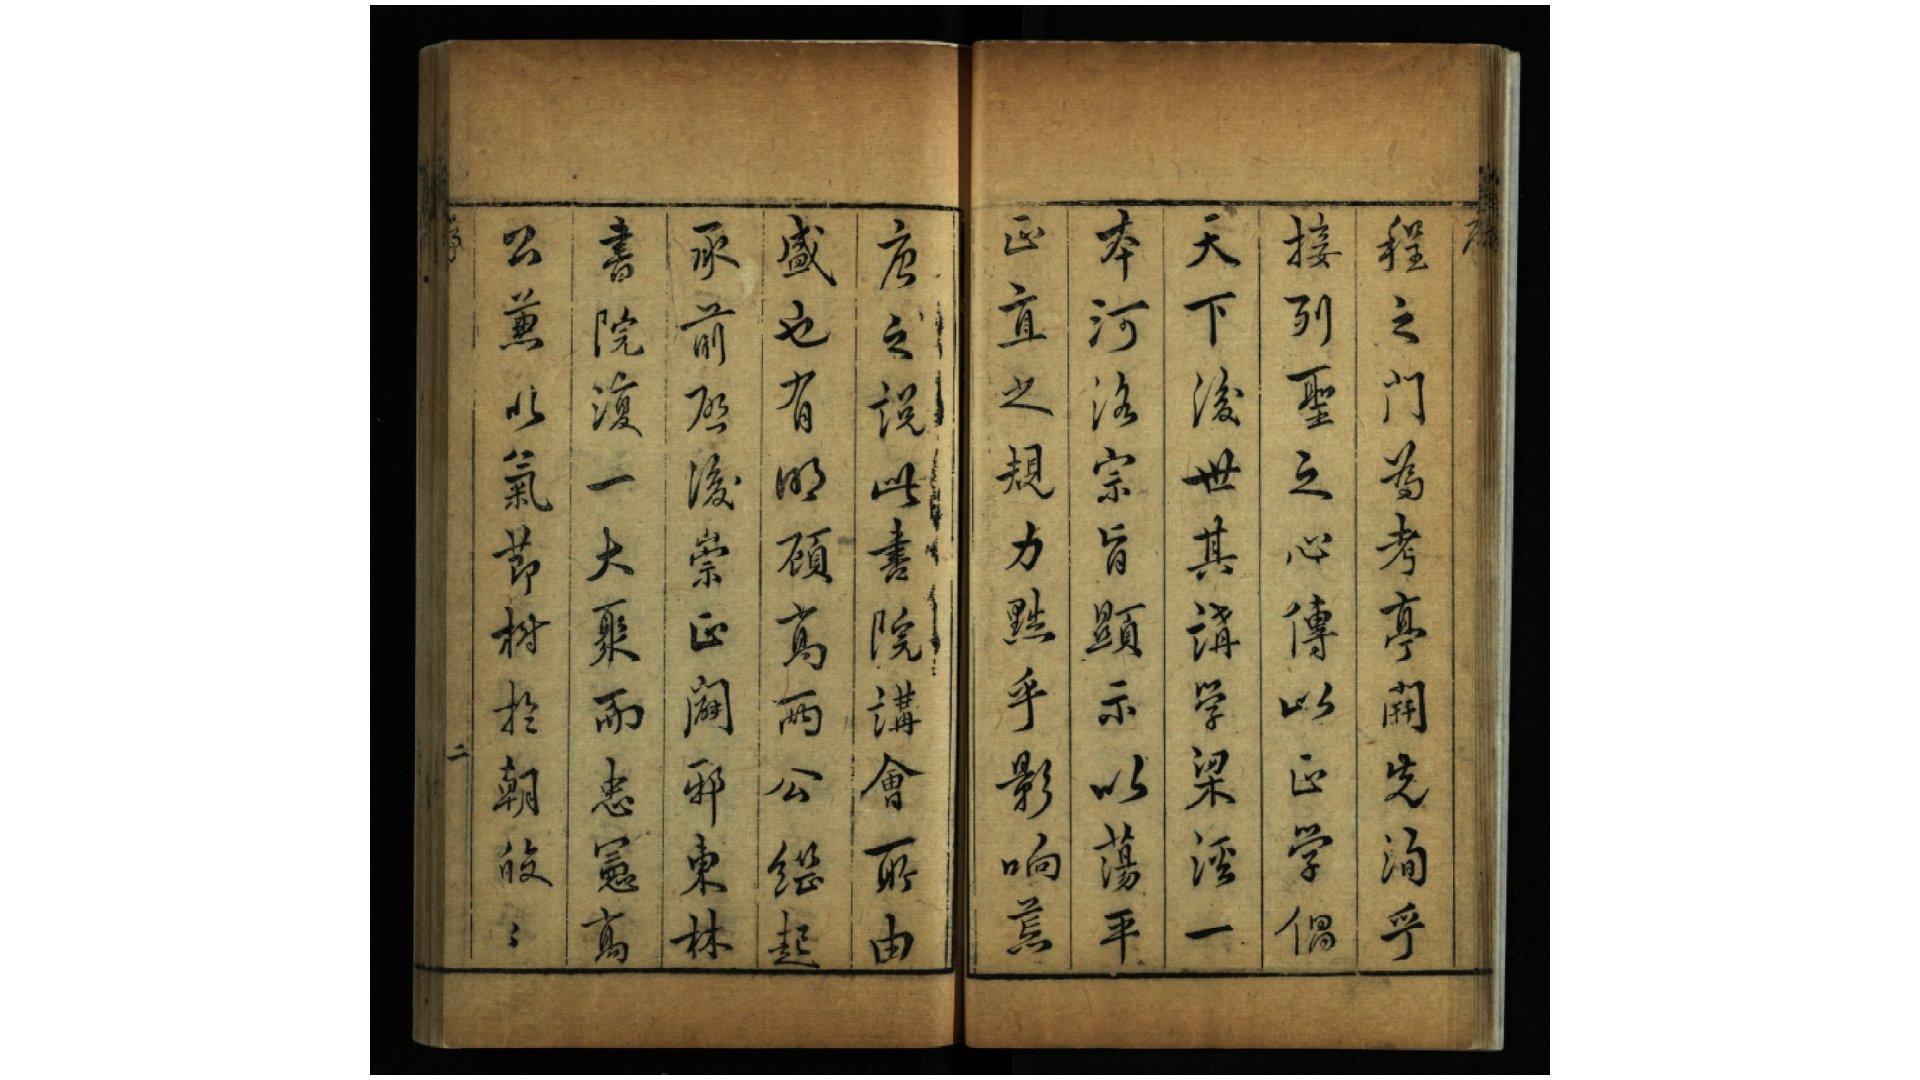 程之門為考亭開先洵乎
接列聖之心傳以正学倡
天下後世其講学梁溪一
本河洛宗旨顯示以蕩平
正直之規力黜乎影响荒
唐之說此書院講會所由
盛也有明顧高兩公繼起
承前啓後崇正闢邪東林
書院復一大聚而忠憲高
公兼以氣節樹於朝的〻
序
二